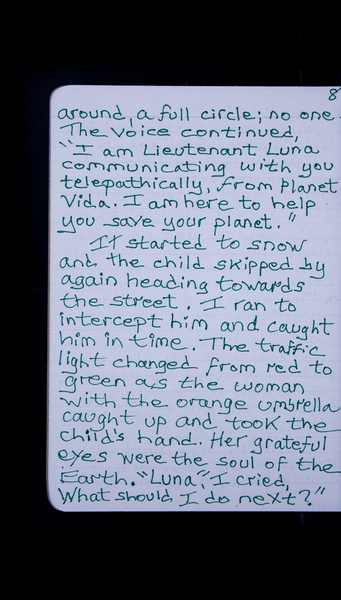 8
around, a full circle; no one.
The voice continued,
"I am Lieutenant Luna
communicating with you
telepathically, from Planet
Vida. I am here to help
you save your planet."
It started to snow
and the child skipped by
again heading towards
the street. I ran to
intercept him and caught
him in time. The traffic
light changed from red to
green as the woman
with the orange umbrella
caught up and took the
child's hand. Her grateful
eyes were the soul of the
Earth. "Luna", I cried,
What should I do next?"